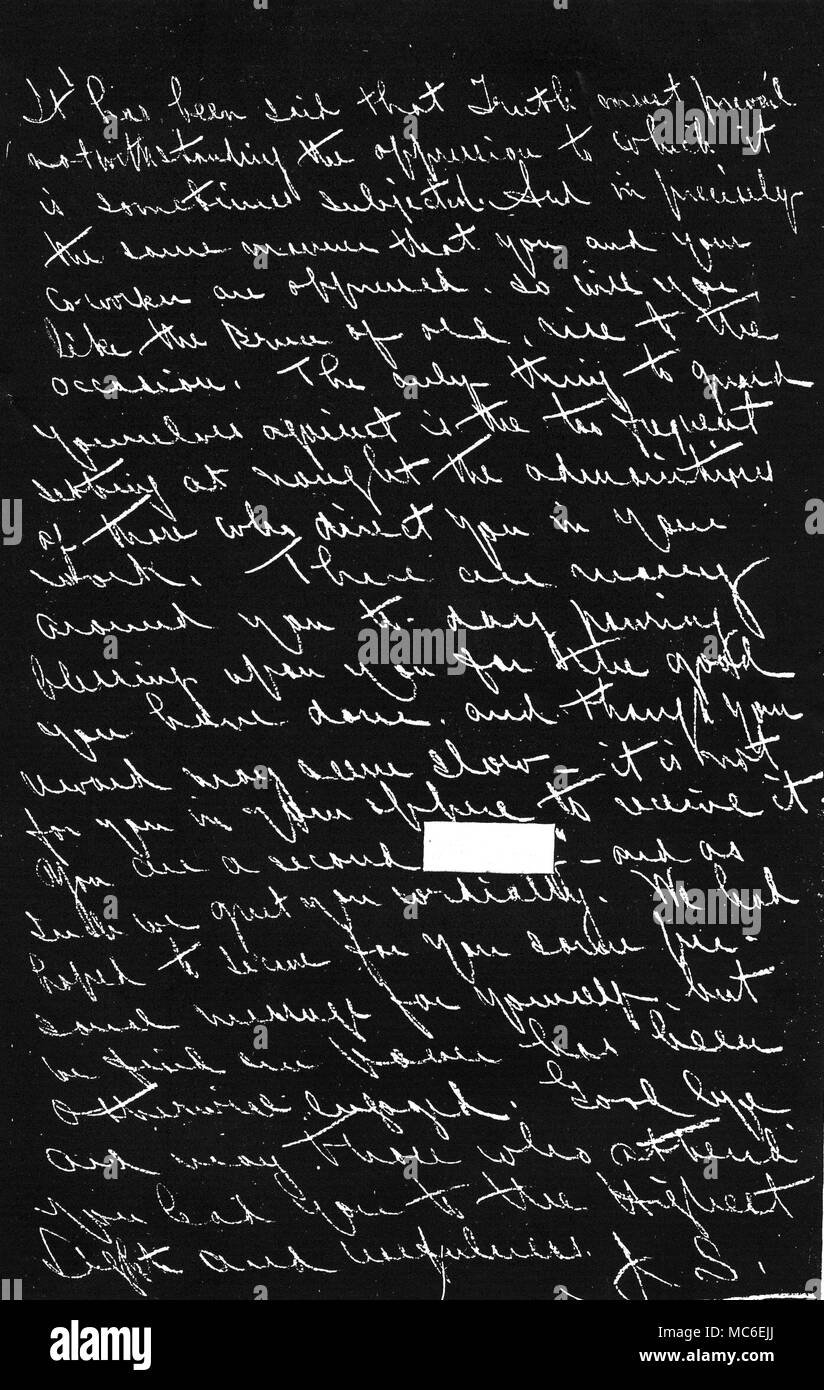 It has been said that Truth must prevail
notwithstanding the oppression to which it
is sometimes subjected. And in precisely
the same manner that you and your
co-workers are oppressed. so will you
like the Bruce of old, rise to the
occasion. The only thing to guard
yourselves against is the too frequent
setting at naught the admonitions
of those who direct you in your
work. There are many
around you to-day pouring
blessing upon you for the good
you have done. and though your
reward may seem slow - it is not
for you in your sphere to receive it.
You are a second - and as
such we greet you cordially. We had
hoped to secure for you some per-
sonal message for yourself, but
we find our power has been
otherwise engaged. Good bye
and may those who attend
you lead you to the Highest
Light and usefulness. J. S.
alamy stock photo
MC6EJJ
www.alamy.com